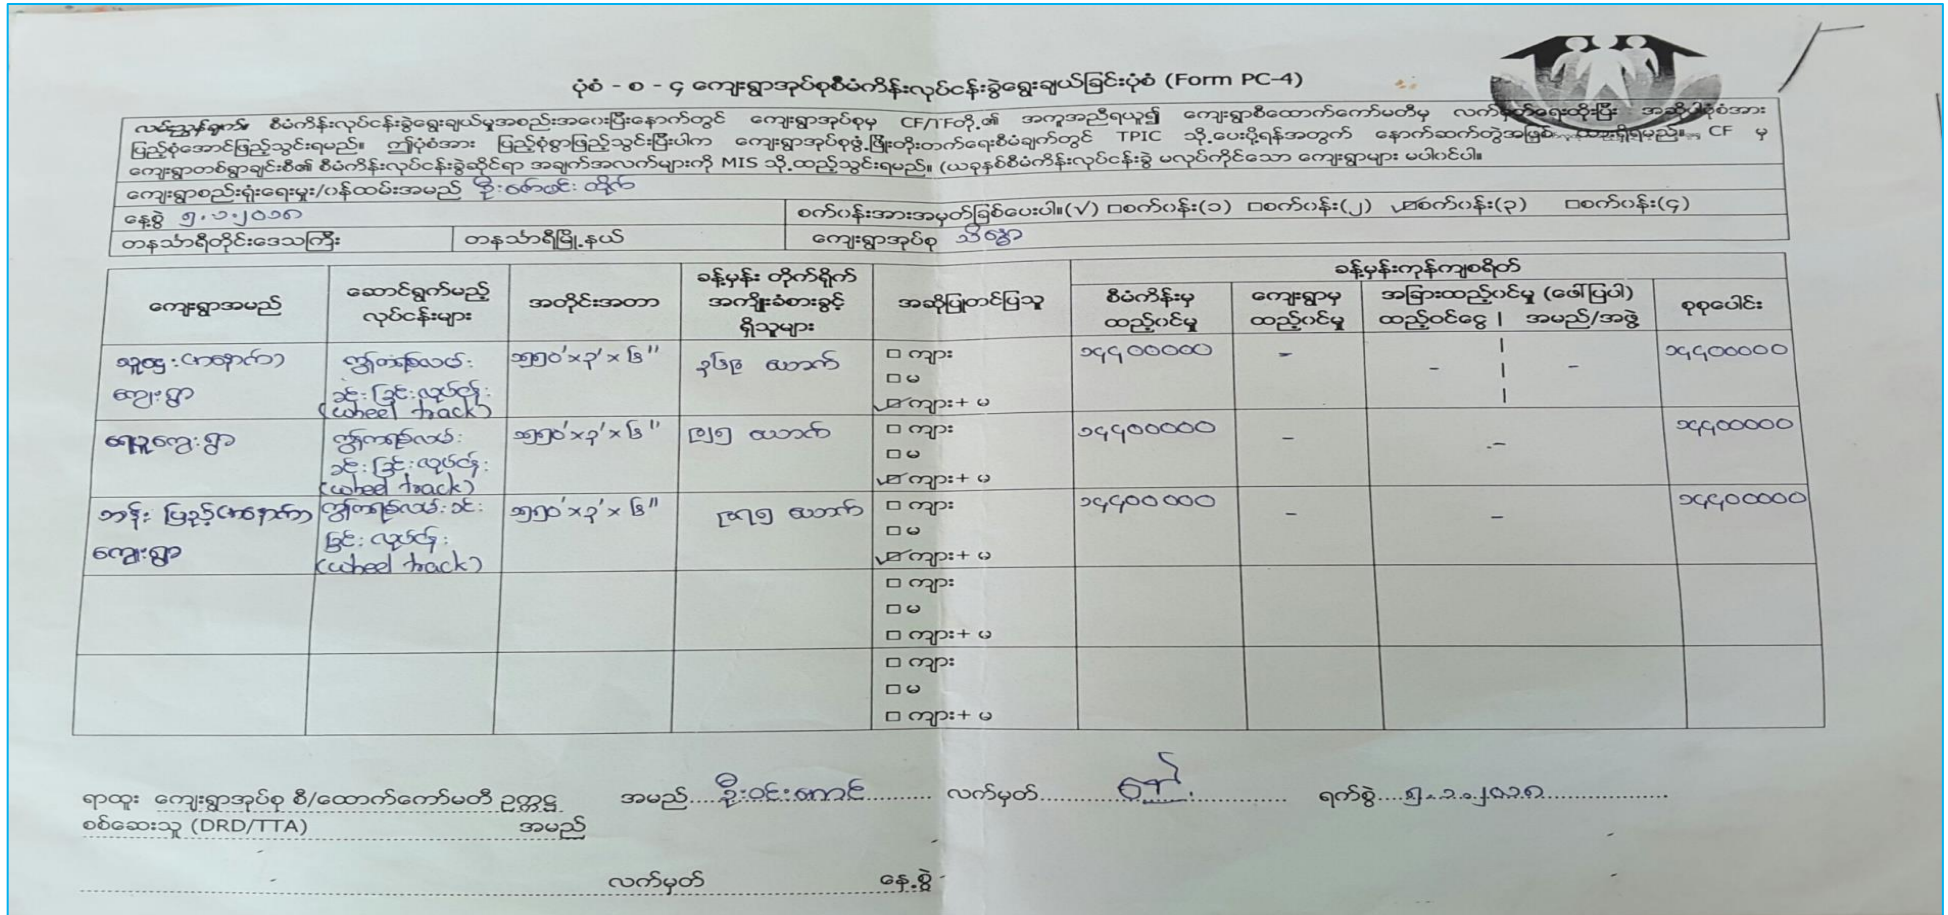 ပုံစံ - စ - ၄ ကျေးရွာအုပ်စုစီမံကိန်းလုပ်ငန်းခွဲရွေးချယ်ခြင်းပုံစံ (Form PC-4)
လမ်းညွှန်ချက်။ စီမံကိန်းလုပ်ငန်းခွဲရွေးချယ်မှုအစည်းအဝေးပြီးနောက်တွင် ကျေးရွာအုပ်စုမှ CF/TFတို့၏ အကူအညီရယူ၍ ကျေးရွာစီထောက်ကော်မတီမှ လက်မှတ်ရေးထိုးပြီး အဆိုပါပုံစံအား
ပြည့်စုံအောင်ဖြည့်သွင်းရမည်။ ဤပုံစံအား ပြည့်စုံစွာဖြည့်သွင်းပြီးပါက ကျေးရွာအုပ်စုဖွံ့ဖြိုးတိုးတက်ရေးစီမံချက်တွင် TPIC သို့ပေးပို့ရန်အတွက် နောက်ဆက်တွဲအဖြစ် ထားရှိရမည်။ CF မှ
ကျေးရွာတစ်ရွာချင်းစီ၏ စီမံကိန်းလုပ်ငန်းခွဲဆိုင်ရာ အချက်အလက်များကို MIS သို့ထည့်သွင်းရမည်။ (ယခုနှစ်စီမံကိန်းလုပ်ငန်းခွဲ မလုပ်ကိုင်သော ကျေးရွာများ မပါဝင်ပါ။
ကျေးရွာစည်းရုံးရေးမှူး/ဝန်ထမ်းအမည် ဦးဇော်မင်းထိုက်
နေ့စွဲ ၅.၁.၂၀၁၈ စက်ဝန်းအားအမှတ်ခြစ်ပေးပါ။(√) □စက်ဝန်း(၁) □စက်ဝန်း(၂) ☑စက်ဝန်း(၃) □စက်ဝန်း(၄)
တနင်္သာရီတိုင်းဒေသကြီး တနင်္သာရီမြို့နယ် ကျေးရွာအုပ်စု သိန္ဒော
ကျေးရွာအမည် ဆောင်ရွက်မည့် လုပ်ငန်းများ အတိုင်းအတာ ခန့်မှန်း တိုက်ရိုက် အကျိုးခံစားခွင့် ရှိသူများ အဆိုပြုတင်ပြသူ ခန့်မှန်းကုန်ကျစရိတ်
စီမံကိန်းမှ ထည့်ဝင်မှု ကျေးရွာမှ ထည့်ဝင်မှု အခြားထည့်ဝင်မှု (ဖော်ပြပါ) ထည့်ဝင်ငွေ | အမည်/အဖွဲ့ စုစုပေါင်း
သူဌေး(အနောက်) ကွန်ကရစ်လမ်း ၅၅၀'×၃'×၆" ယောက် □ ကျား ၁၄၄၀၀၀၀၀ - - | - ၁၄၄၀၀၀၀၀
□ မ
ကျေးရွာ ခင်းခြင်းလုပ်ငန်း ☑ ကျား + မ
(wheel track)
ရေပူကျေးရွာ ကွန်ကရစ်လမ်း ၅၅၀'×၃'×၆" ယောက် □ ကျား ၁၄၄၀၀၀၀၀ - - ၁၄၄၀၀၀၀၀
ခင်းခြင်းလုပ်ငန်း □ မ
(wheel track) ☑ ကျား + မ
ဘန်းပြည့်(အနောက်) ကွန်ကရစ်လမ်းခင်း ၅၅၀'×၃'×၆" ယောက် □ ကျား ၁၄၄၀၀၀၀၀ - - ၁၄၄၀၀၀၀၀
ကျေးရွာ ခြင်းလုပ်ငန်း □ မ
(wheel track) ☑ ကျား + မ
□ ကျား
□ မ
□ ကျား + မ
□ ကျား
□ မ
□ ကျား + မ
ရာထူး ကျေးရွာအုပ်စု စီ/ထောက်ကော်မတီ ဥက္ကဋ္ဌ အမည်....ဦးဝင်းအောင်.......... လက်မှတ်.................... ရက်စွဲ....၅.၁.၂၀၁၈...............
စစ်ဆေးသူ (DRD/TTA) အမည်
လက်မှတ် နေ့စွဲ